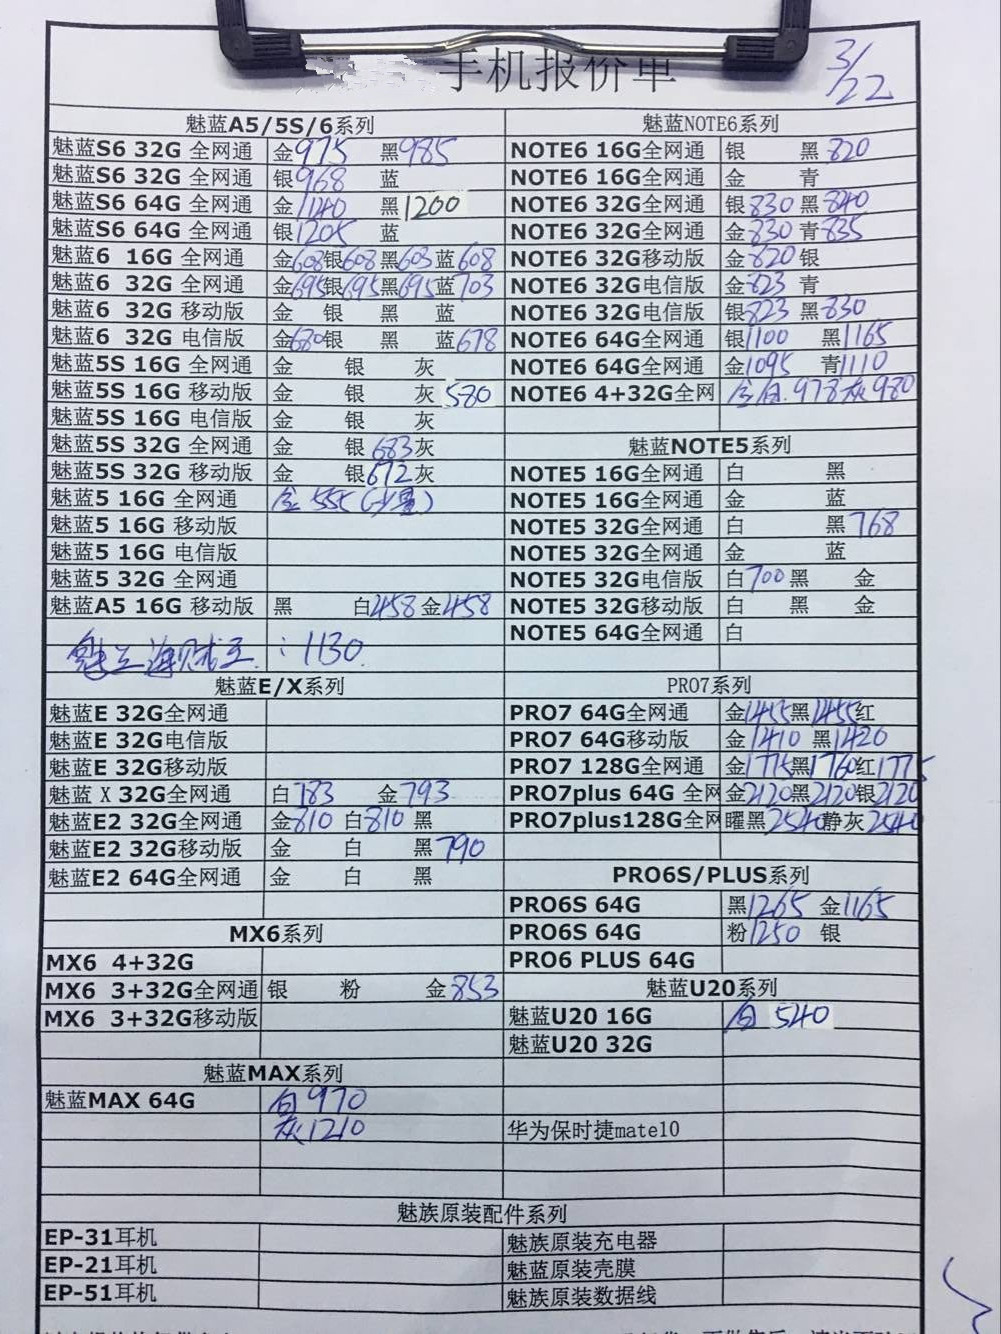 手机报价单
3/22
魅蓝A5/5S/6系列
魅蓝S6 32G 全网通 金975 黑985
魅蓝S6 32G 全网通 银968 蓝
魅蓝S6 64G 全网通 金1240 黑1200
魅蓝S6 64G 全网通 银1205 蓝
魅蓝6 16G 全网通 金608银608黑603蓝608
魅蓝6 32G 全网通 金695银695黑695蓝703
魅蓝6 32G 移动版 金 银 黑 蓝
魅蓝6 32G 电信版 金680银 黑 蓝678
魅蓝5S 16G 全网通 金 银 灰
魅蓝5S 16G 移动版 金 银 灰580
魅蓝5S 16G 电信版 金 银 灰
魅蓝5S 32G 全网通 金 银683灰
魅蓝5S 32G 移动版 金 银672灰
魅蓝5 16G 全网通 金555(少量)
魅蓝5 16G 移动版
魅蓝5 16G 电信版
魅蓝5 32G 全网通
魅蓝A5 16G 移动版 黑 白458金458
:1130
魅蓝NOTE6系列
NOTE6 16G全网通 银 黑820
NOTE6 16G全网通 金 青
NOTE6 32G全网通 银830黑840
NOTE6 32G全网通 金830青835
NOTE6 32G移动版 金820银
NOTE6 32G电信版 金823 青
NOTE6 32G电信版 银823 黑830
NOTE6 64G全网通 银1100 黑1165
NOTE6 64G全网通 金1095 青1110
NOTE6 4+32G全网 978灰980
魅蓝NOTE5系列
NOTE5 16G全网通 白 黑
NOTE5 16G全网通 金 蓝
NOTE5 32G全网通 白 黑768
NOTE5 32G全网通 金 蓝
NOTE5 32G电信版 白700黑 金
NOTE5 32G移动版 白 黑 金
NOTE5 64G全网通 白
魅蓝E/X系列
魅蓝E 32G全网通
魅蓝E 32G电信版
魅蓝E 32G移动版
魅蓝 X 32G全网通 白783 金793
魅蓝E2 32G全网通 金810 白810 黑
魅蓝E2 32G移动版 金 白 黑790
魅蓝E2 64G全网通 金 白 黑
PRO7系列
PRO7 64G全网通 金1455黑1455红
PRO7 64G移动版 金1410 黑1420
PRO7 128G全网通 金1775黑1760红1775
PRO7plus 64G 全网 金2120黑2120银2120
PRO7plus128G全网 曜黑2540静灰2540
PRO6S/PLUS系列
PRO6S 64G 黑1265 金1165
PRO6S 64G 粉1250 银
PRO6 PLUS 64G
MX6系列
MX6 4+32G
MX6 3+32G全网通 银 粉 金853
MX6 3+32G移动版
魅蓝U20系列
魅蓝U20 16G 白 540
魅蓝U20 32G
魅蓝MAX系列
魅蓝MAX 64G 白970
灰1210
华为保时捷mate10
魅族原装配件系列
EP-31耳机 魅族原装充电器
EP-21耳机 魅蓝原装壳膜
EP-51耳机 魅族原装数据线